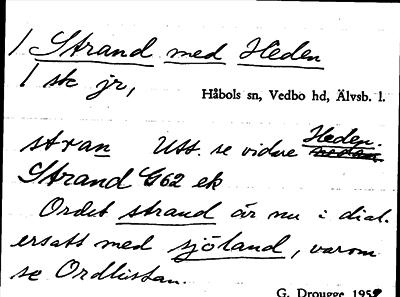 / Strand med Heden
1 sk jr,
Håbols sn, Vedbo hd, Älvsb. l.
Heden.
stran Utt. se vidare nedan.
Strand G62 ek
Ordet strand är nu i dial.
ersatt med sjöland, varom
se Ordlistan.
G. Drougge 1959